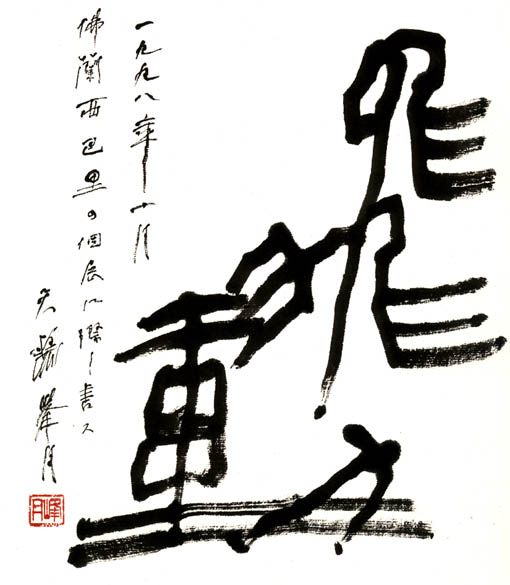 飛動
一九九八年十月
佛蘭西巴里の個展に際し書ス
峯月
峰月